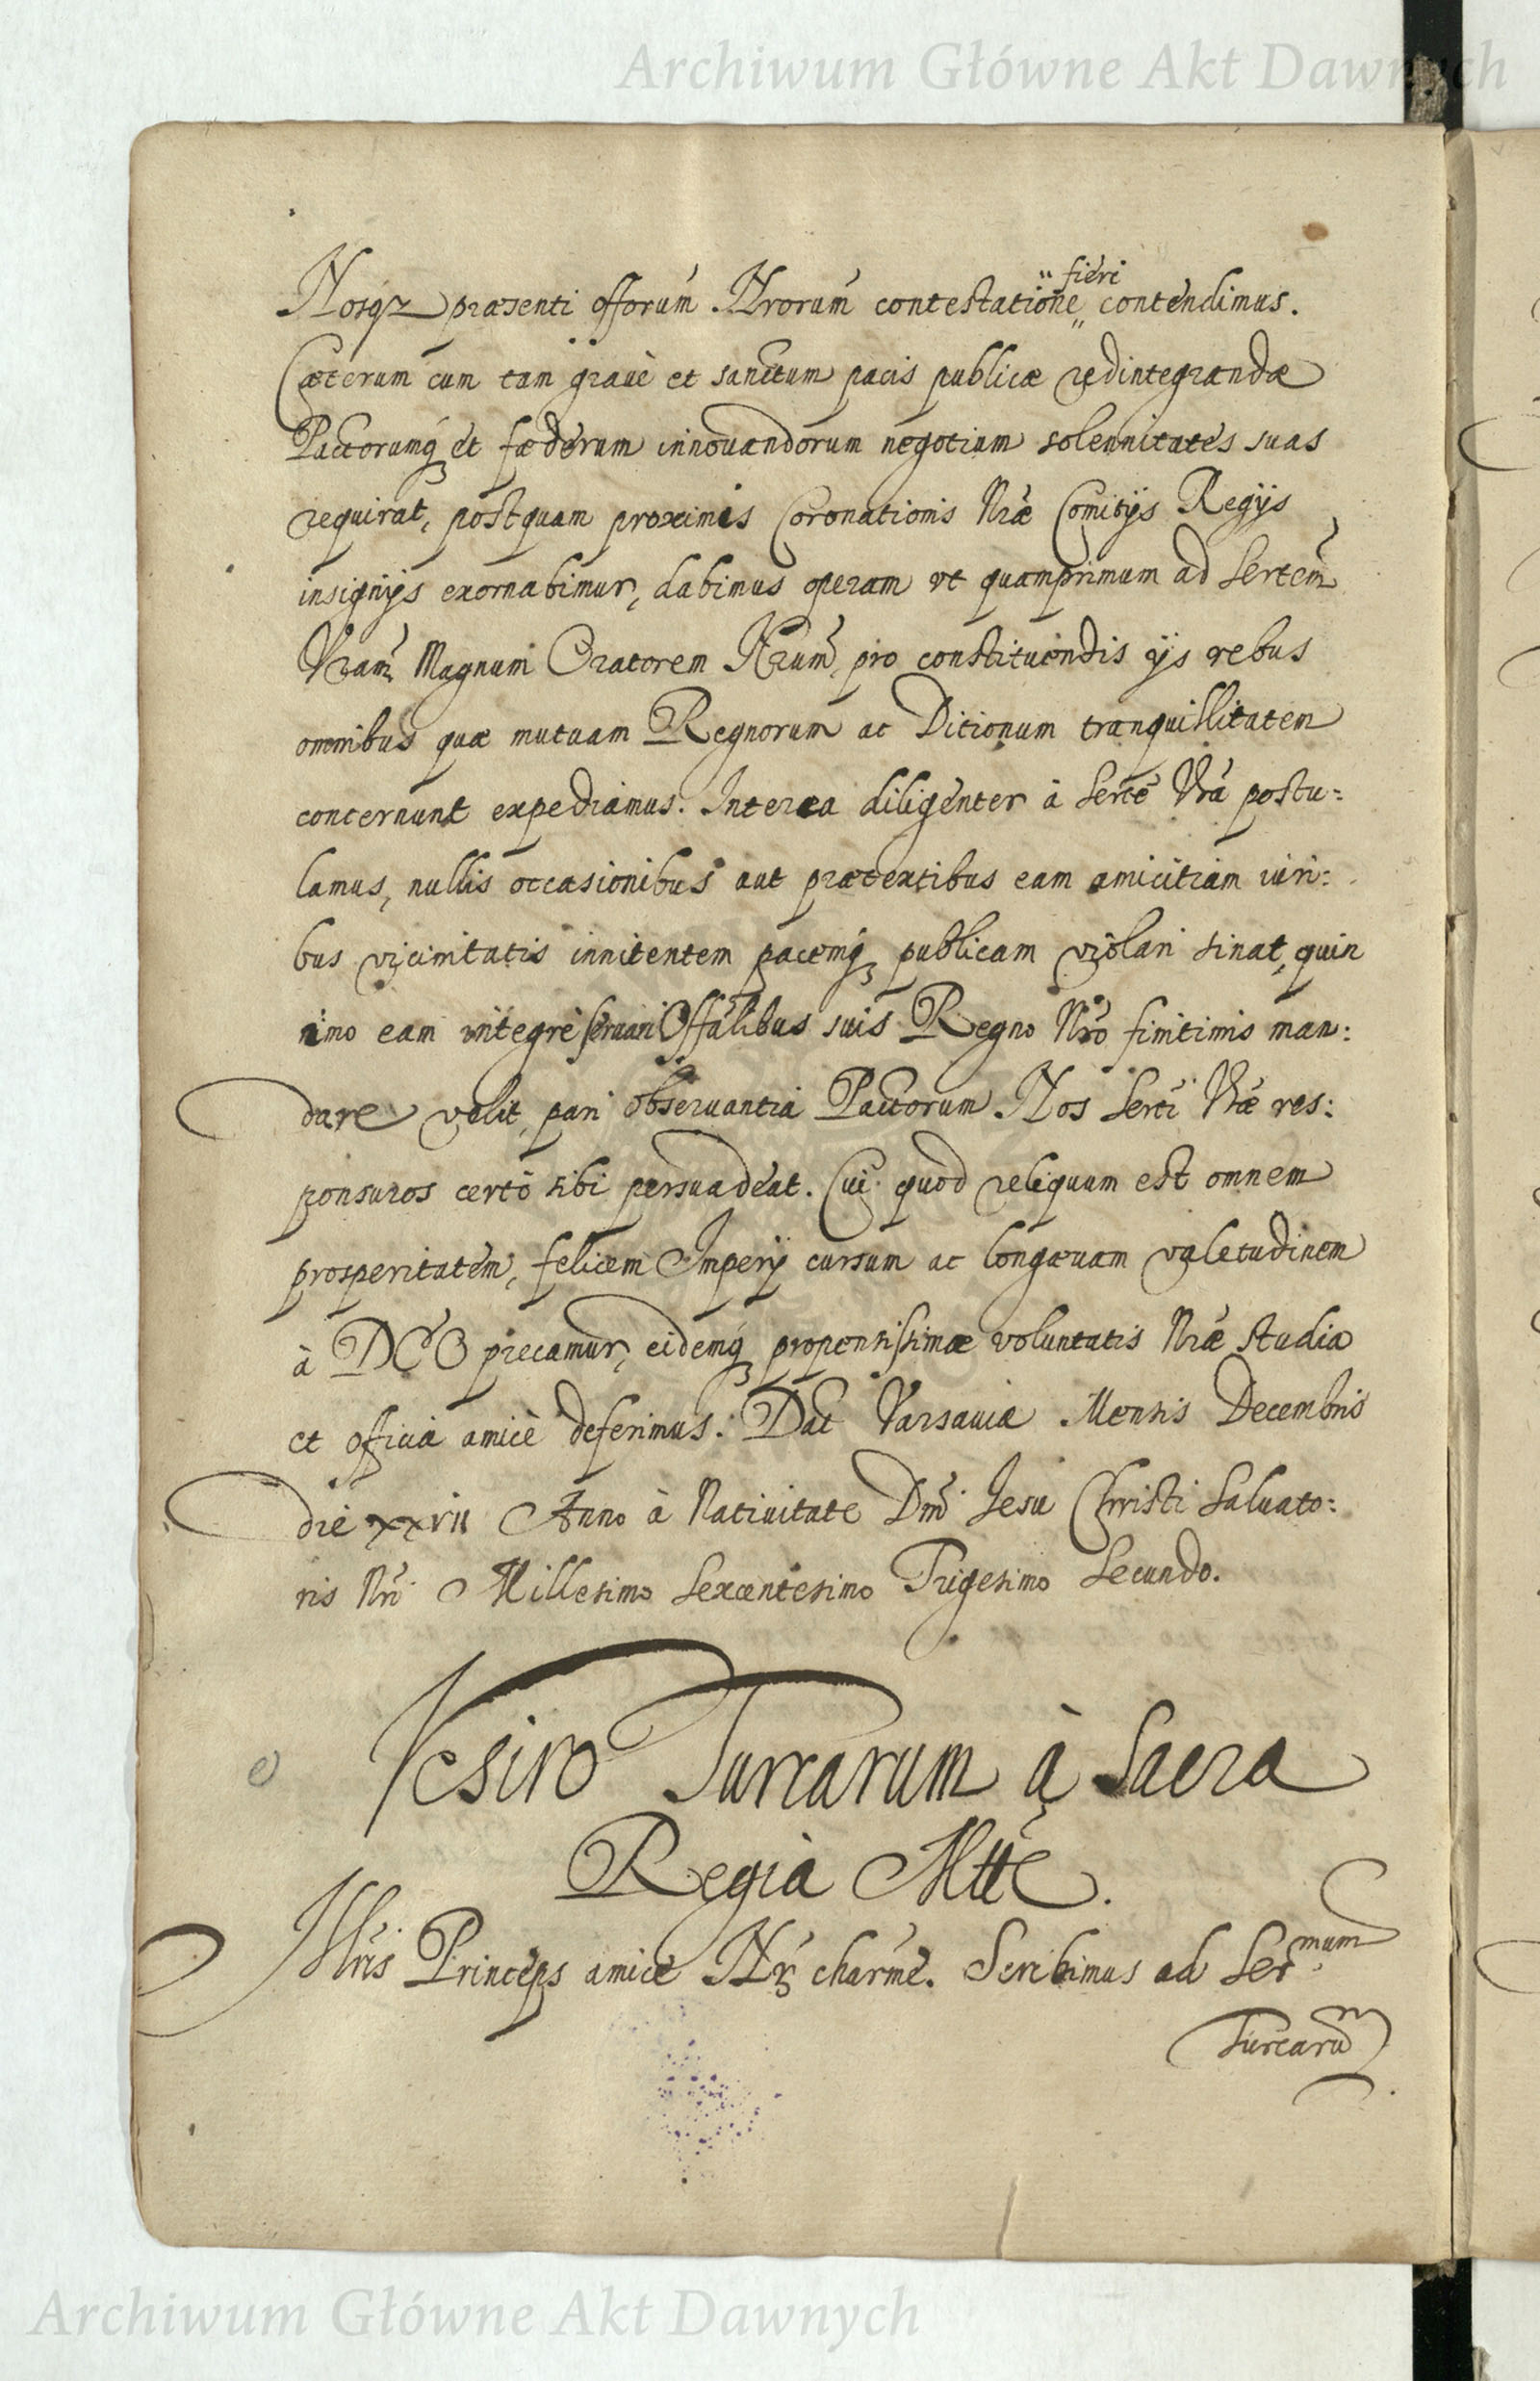 Archiwum Główne Akt Dawnych
fieri
Nosq₃ præsenti offorum Nrorum contestatione contendimus.
Cæterum cum tam grauè et sanctum pacis publicæ redintegrandæ
Pactorumq́₃ et fæderum innouandorum negotium solennitates suas
requirat, postquam proximis Coronationis Nræ Comitijs Regijs
insignijs exornabimur, dabimus operam vt quamprimum ad Sertem
Vram Magnum Oratorem Nrum pro constituendis ijs rebus
omnibus quæ mutuam Regnorum ac Ditionum tranquillitatem
concernunt expediamus. Interea diligenter à Serte Vrâ postu:
lamus, nullis occasionibus aut prætextibus eam amicitiam iuri:
bus vicinitatis innitentem pacemq́₃ publicam violari sinat, quin
nimo eam integrè seruari Offalibus suis Regno Nro finitimis man:
dare velit, pari obseruantiâ Pactorum Nos Serti Vræ res:
ponsuros certò sibi persuadeat. Cui quod reliquum est omnem
prosperitatem, felicem Imperij cursum ac longæuam valetudinem
à DEO precamur, eidemq́₃ propensissimæ voluntatis Nræ studia
et officia amicè deferimus. Dat Varsauiæ Mensis Decembris
die xxvii Anno à Natiuitate Dni Jesu Christi Saluato:
ris Nri Millesimo Sexcentesimo Trigesimo Secundo.
Vesiro Turcarum à Sacra
Regià Mtte.
Illris Princeps amice Nr charme. Scribimus ad Sermum
Turcarum
Archiwum Główne Akt Dawnych